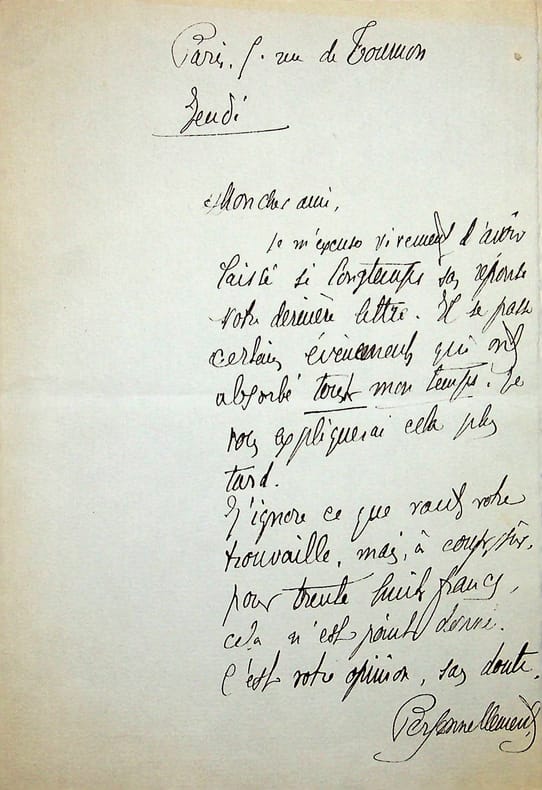 Paris, 5. rue de Tournon
Jeudi
Mon cher ami,
Je m'excuse vivement d'avoir
laissé si longtemps sans réponse
votre dernière lettre. Il se passe
certains évènements qui ont
absorbé tout mon temps. Je
vous expliquerai cela plus
tard.
J'ignore ce que vaut votre
trouvaille, mais, à coup sûr,
pour trente huit francs,
cela n'est point donné.
C'est votre opinion, sans doute.
Personnellement,